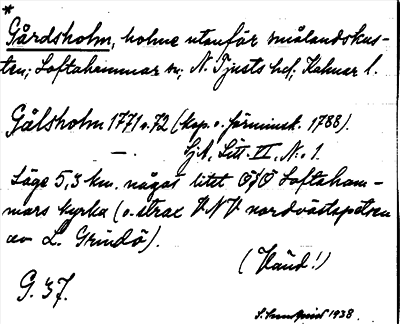 *
Gårdsholm, holme utanför smålandskus-
ten; Loftahammar sn; N. Tjusts hd, Kalmar l.
Gålsholm 1771 o. 72 (kop. o. förminsk. 1788).
— Sj. A. Litt. II, N:o 1.
Läge 5,3 km. något litet OSO Loftaham-
mars kyrka (o. strax VNV nordvästspetsen
av L. Grindö).
(Vänd!)
G. 37.
1938.